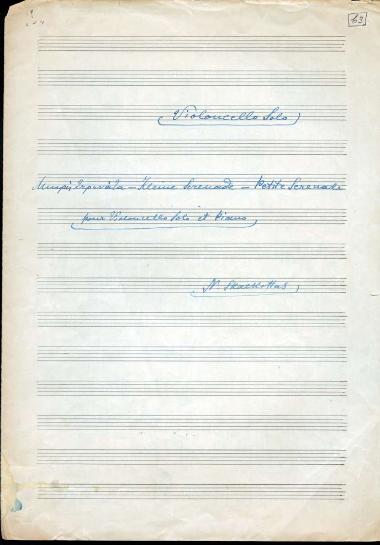 63
Violoncello Solo
Μικρή Σερενάτα – Kleine Serenade – Petite Serenade
pour Violoncello Solo et Piano
N. Skalkottas